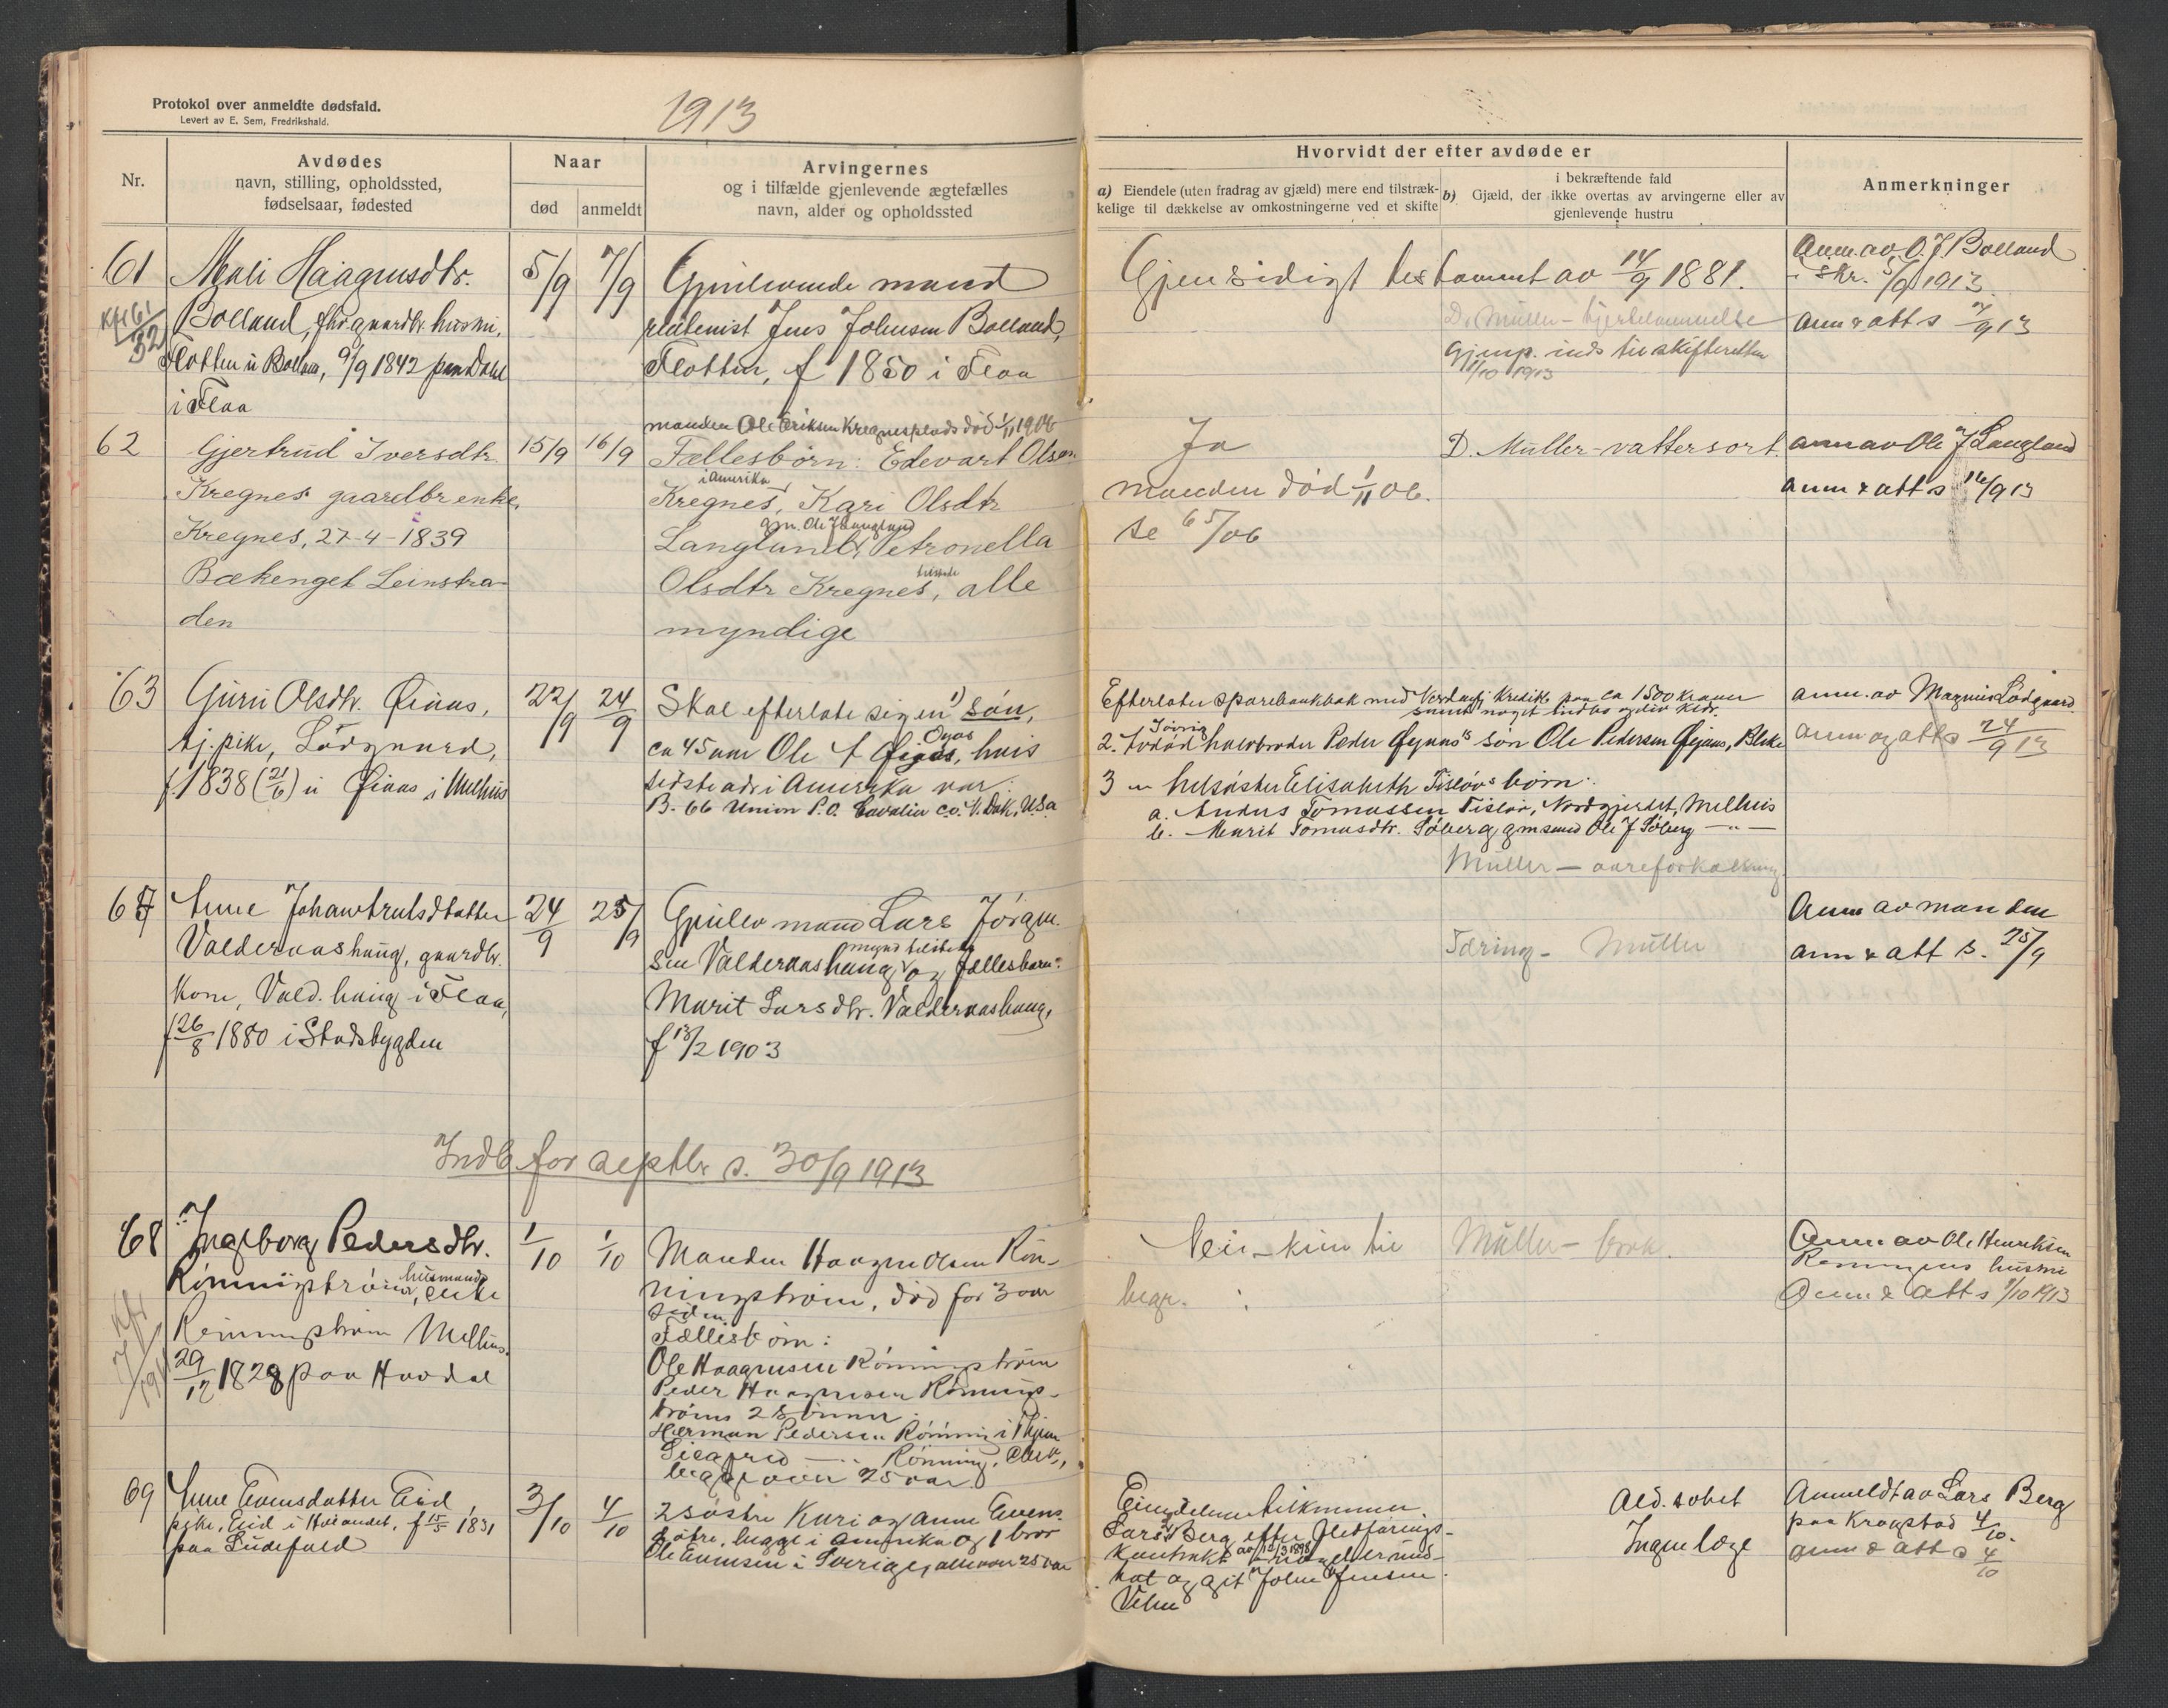 Protokol over anmeldte dødsfald.
Levert av E. Sem, Fredrikshald.
1913
Nr.
Avdødes
navn, stilling, opholdssted,
fødselsaar, fødested
Naar
død
anmeldt
Arvingernes
og i tilfælde gjenlevende ægtefælles
navn, alder og opholdssted
Hvorvidt der efter avdøde er
a) Eiendele (uten fradrag av gjæld) mere end tilstræk-
kelige til dækkelse av omkostningerne ved et skifte
i bekræftende fald
b) Gjæld, der ikke overtas av arvingerne eller av
gjenlevende hustru
Anmerkninger
61
Mali Haagensdtr.
Bolland, fhv. gaardbr. hustru,
Flotten u Bolland, 9/9 1842 paa Dahl
i Flaa
5/9
7/9
Gjenlevende mand
Jens Johnsen Bolland,
Flotten, f 1850 i Flaa
Gjensidigt testament av 14/9 1881.
D. Müller - hjertelammelse
Gjenp. inds til skifteretten
11/10 1913
Anm. av O. J Bolland
skr. 5/9 1913
anm & att s 7/9 13
62
Gjertrud Iversdtr.
Kregnes gaardbr enke,
Kregnes, 27-4-1839
Bækenget Leinstra-
den
15/9
16/9
manden Ole Eriksen Kregnesplads død 1/11 1906
Fællesbørn: Edevart Olsen
i Amerika
Kregnes, Kari Olsdtr
gm. Ole J Langland
Langland, Petronella
Olsdtr Kregnes, alle
myndige
Ja
manden død 1/11 06.
se 65/06
D. Müller - vattersort.
anm av Ole J Langland
anm & att s 16/9 13
63
Guru Olsdtr. Øiaas,
tj. pike, Lødgaard,
f. 1838 (21/6) u Øiaas i Melhus
22/9
24/9
Skal efterlate sig en 1) søn,
ca 45 aar Ole Øyas, hvis
sidste adr i Amerika var:
B. 66 Union P.O. Cavalier co. N. Dak, U.S.a
Efterlater sparebankbok med kreditt paa ca 1500 kroner
samt noget indbo og div klær.
2. Avdød halvbroder Peder Øyaas's søn Ole Pedersen Øyaas,
3 " helsøster Elisabeth Tisløvs børn:
a. Anders Tomassen Tisløv, Nordgjerdet, Melhus
b. Marit Tomasdtr. Søberg, gm smed Ole J Søberg - " -
Müller - aareforkalkning
anm. av Magnus Lødgaard.
anm og att s 24/9 13
67
Anne Johanetrulsdatter
Valderaashaug, gaardbr.
kone, Vald. haug i Flaa,
f 26/8 1880 i Stadsbygden
24/9
25/9
Gjenlev mand Lars Jørgen-
sen Valderaashaug og fællesbarn:
Marit Larsdtr. Valderaashaug,
f 13/2 1903
Tæring - Müller
Anm av manden
anm & att s. 25/9
Indb for septbr s. 30/9 1913
68
Ingeborg Pedersdtr.
husmands
Rønningstrøen, enke
Rønningstrøen Melhus.
29/12 1828 paa Hovdal
1/10
1/10
Manden Haagen Olsen Røn-
ningstrøen, død for 3 aar
siden
Fællesbørn:
Ole Haagensen Rønningstrøen
Peder Haagensen Rønning-
trøens 2 sønner:
Herman Pedersen Rønning i Thjem
Sigfred - " - Rønning,
begge over 25 aar
Nei - kun til
begr.
Müller - brok.
Anm av Ole Henriksen
Anm & att s 1/10 1913
69
Anne Evensdatter Eid,
pike, Eid i Hølandet, f 15/5 1831
3/10
4/10
2 søstre Kari og Anne Evens-
døtre, begge i Amerika og 1 bror
Ole Evensen i Sverige, alle over 25 aar
Eiendelene tilkommer
Lars Berg efter føderaads-
kontrakt av 15/3 1898
John Jensen
Ald. svket
Ingen læge
Anmeldt av Lars Berg
paa Krogstad 4/10.
anm & att s 4/10